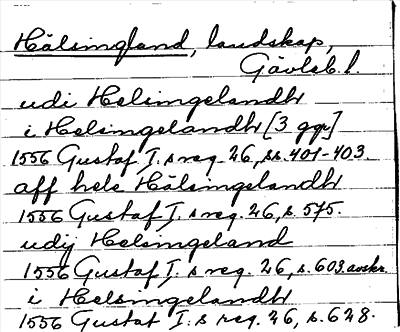 Hälsingland, landskap,
Gävleb. l.
udi Helsingelandh
i Helsingelandh [3 ggr]
1556 Gustaf I.s reg. 26, ss. 401-403.
aff hele Hälsingelandh
1556 Gustaf I.s reg. 26, s. 575.
udij Helsingeland
1556 Gustaf I.s reg. 26, s. 603. avskr.
i Helsingelandh
1556 Gustaf I.s reg. 26, s. 628.